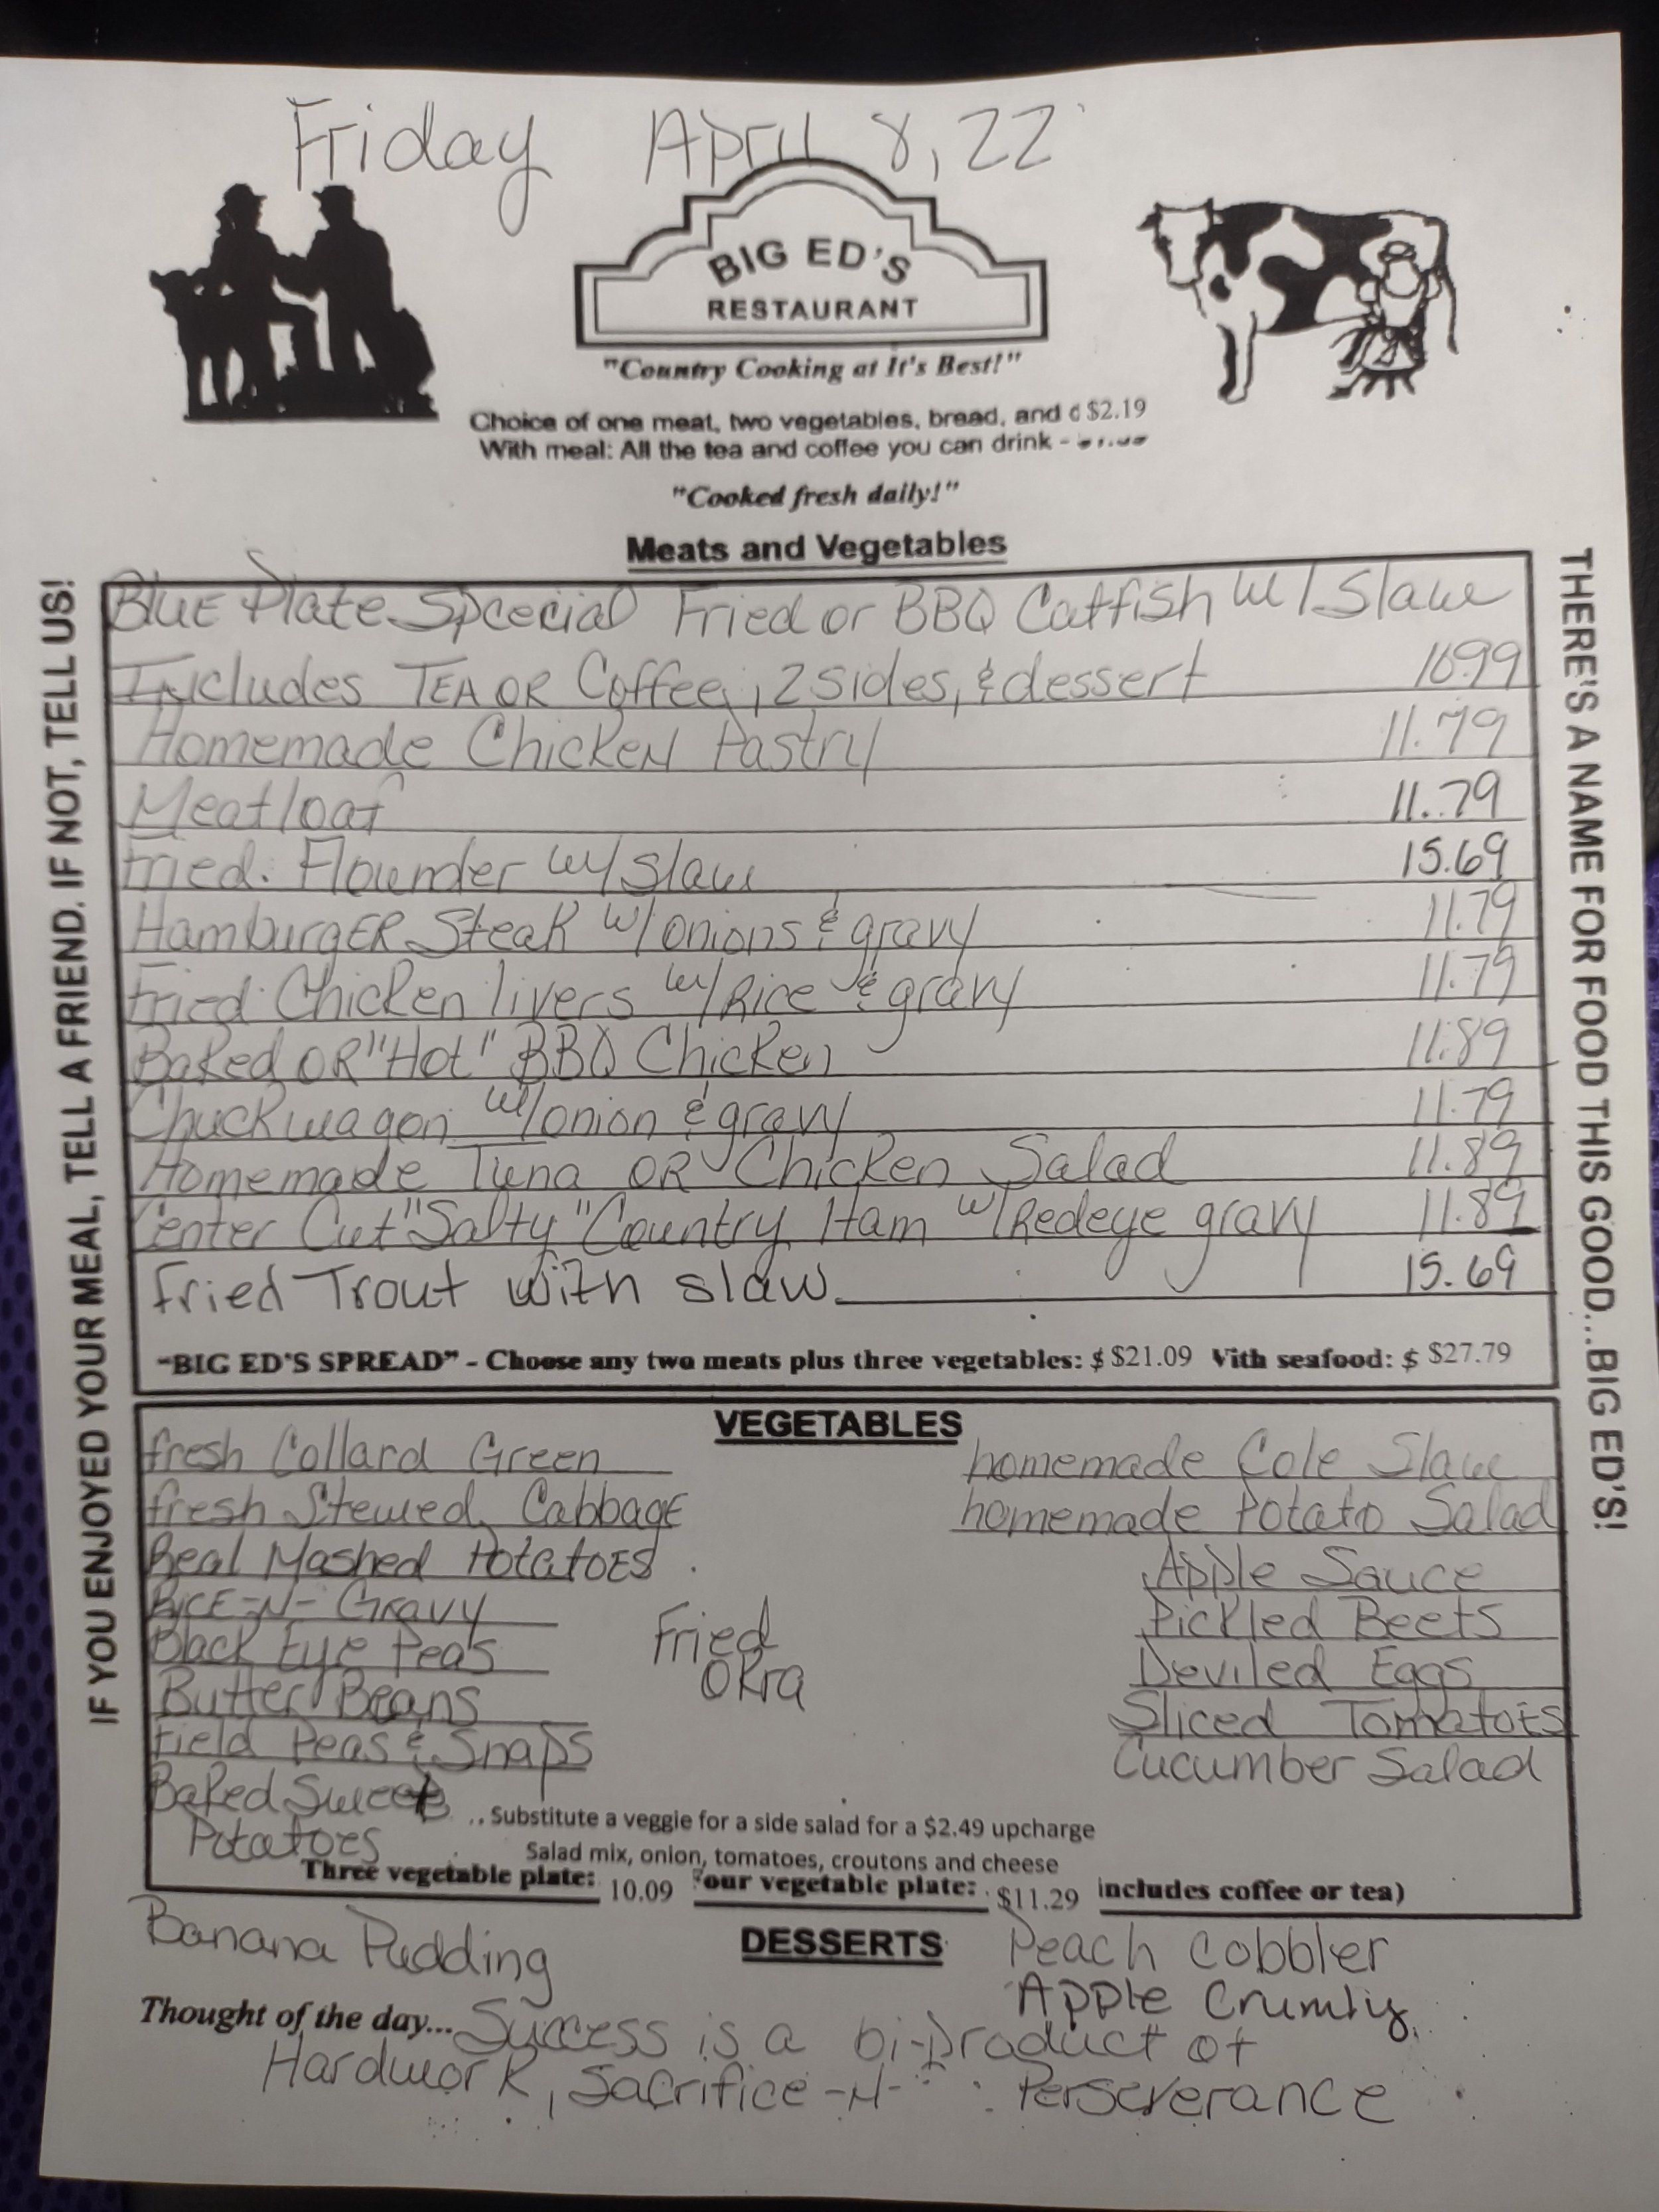 Friday April 8, 22
BIG ED'S
RESTAURANT
"Country Cooking at It's Best!"
Choice of one meat, two vegetables, bread, and d $2.19
With meal: All the tea and coffee you can drink -
"Cooked fresh daily!"
Meats and Vegetables
Blue Plate Spcecial Fried or BBQ Catfish w/Slaw
Includes TEA OR Coffee, 2 sides, & dessert 10.99
Homemade Chicken Pastry 11.79
Meatloaf 11.79
Fried Flounder w/slaw 15.69
HamburgER Steak w/onions & gravy 11.79
Fried Chicken livers w/Rice & gravy 11.79
Baked OR "Hot" BBQ Chicken 11.89
Chuckwagon w/onion & gravy 11.79
Homemade Tuna OR Chicken Salad 11.89
Center Cut "Salty" Country Ham w/Redeye gravy 11.89
Fried Trout with slaw 15.69
"BIG ED'S SPREAD" - Choose any two meats plus three vegetables: $ $21.09 With seafood: $ $27.79
VEGETABLES
fresh Collard Green
fresh Stewed Cabbage
Real Mashed PotatoES
RICE-N-Gravy
Black Eye Peas
Butter Beans
Field Peas & Snaps
Baked Sweet
Potatoes
Fried
Okra
homemade Cole Slaw
homemade Potato Salad
Apple Sauce
Pickled Beets
Deviled Eggs
Sliced Tomatoes
Cucumber Salad
Substitute a veggie for a side salad for a $2.49 upcharge
Salad mix, onion, tomatoes, croutons and cheese
Three vegetable plate: 10.09 Four vegetable plate: $11.29 includes coffee or tea)
DESSERTS
Banana Pudding
Peach Cobbler
Apple Crumbly
Thought of the day... Success is a bi-product of
Hardwork, Sacrifice -N- Perseverance
IF YOU ENJOYED YOUR MEAL, TELL A FRIEND. IF NOT, TELL US!
THERE'S A NAME FOR FOOD THIS GOOD...BIG ED'S!